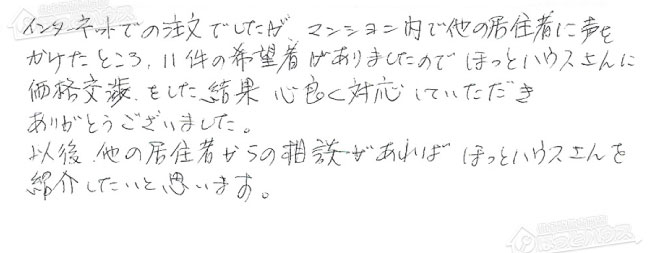 インターネットでの注文でしたが、マンション内で他の居住者に声を
かけたところ、11件の希望者がありましたので ほっとハウスさんに
価格交渉、をした結果 心良く対応していただき
ありがとうございました。
以後、他の居住者からの相談があれば ほっとハウスさんを
紹介したいと思います。